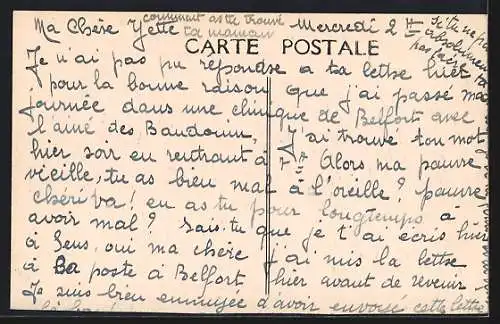 Ma Chère Yette comment as tu trouvé ta maman Mercredi 2h
Si tu ne
absolument
pas
CARTE POSTALE
Je n'ai pas pu répondre a ta lettre hier
pour la bonne raison que j'ai passé ma
journée dans une clinique de Belfort avec
l'ainé des Baudouin, J'ai trouvé ton mot
hier soir en rentrant à 7h. Alors ma pauvre
vieille, tu as bien mal à l'oreille? pauvre
chériva! en as tu pour longtemps à
avoir mal? Sais-tu que je t'ai écris hier
à Sens, oui ma chère j'ai mis la lettre
à la poste à Belfort hier avant de revenir.
Je suis bien ennuyée d'avoir envoyé cette lettre